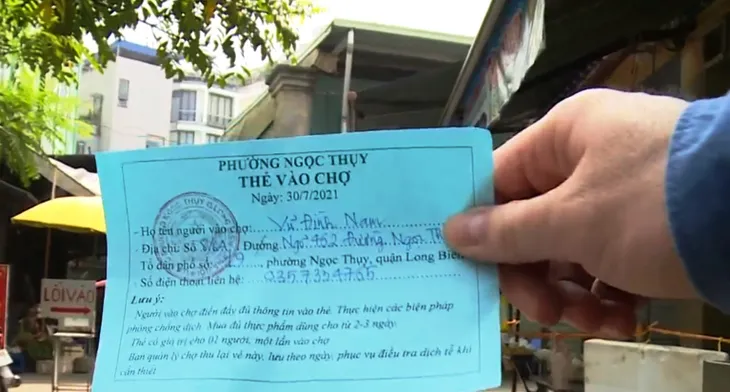 PHƯỜNG NGỌC THỤY
THẺ VÀO CHỢ
Ngày: 30/7/2021
- Họ tên người vào chợ: Vũ Đình Nam
- Địa chỉ: Số Đường Ngõ 752 Đường Ngọc
Tổ dân phố số: 29, phường Ngọc Thụy, quận Long Biên
- Số điện thoại liên hệ: 0357354765
Lưu ý:
Người vào chợ điền đầy đủ thông tin vào thẻ. Thực hiện các biện pháp
phòng chống dịch. Mua đủ thực phẩm dùng cho từ 2-3 ngày.
Thẻ có giá trị cho 01 người, một lần vào chợ
Ban quản lý chợ thu lại vé này, lưu theo ngày, phục vụ điều tra dịch tễ khi
cần thiết
LỐI VÀO